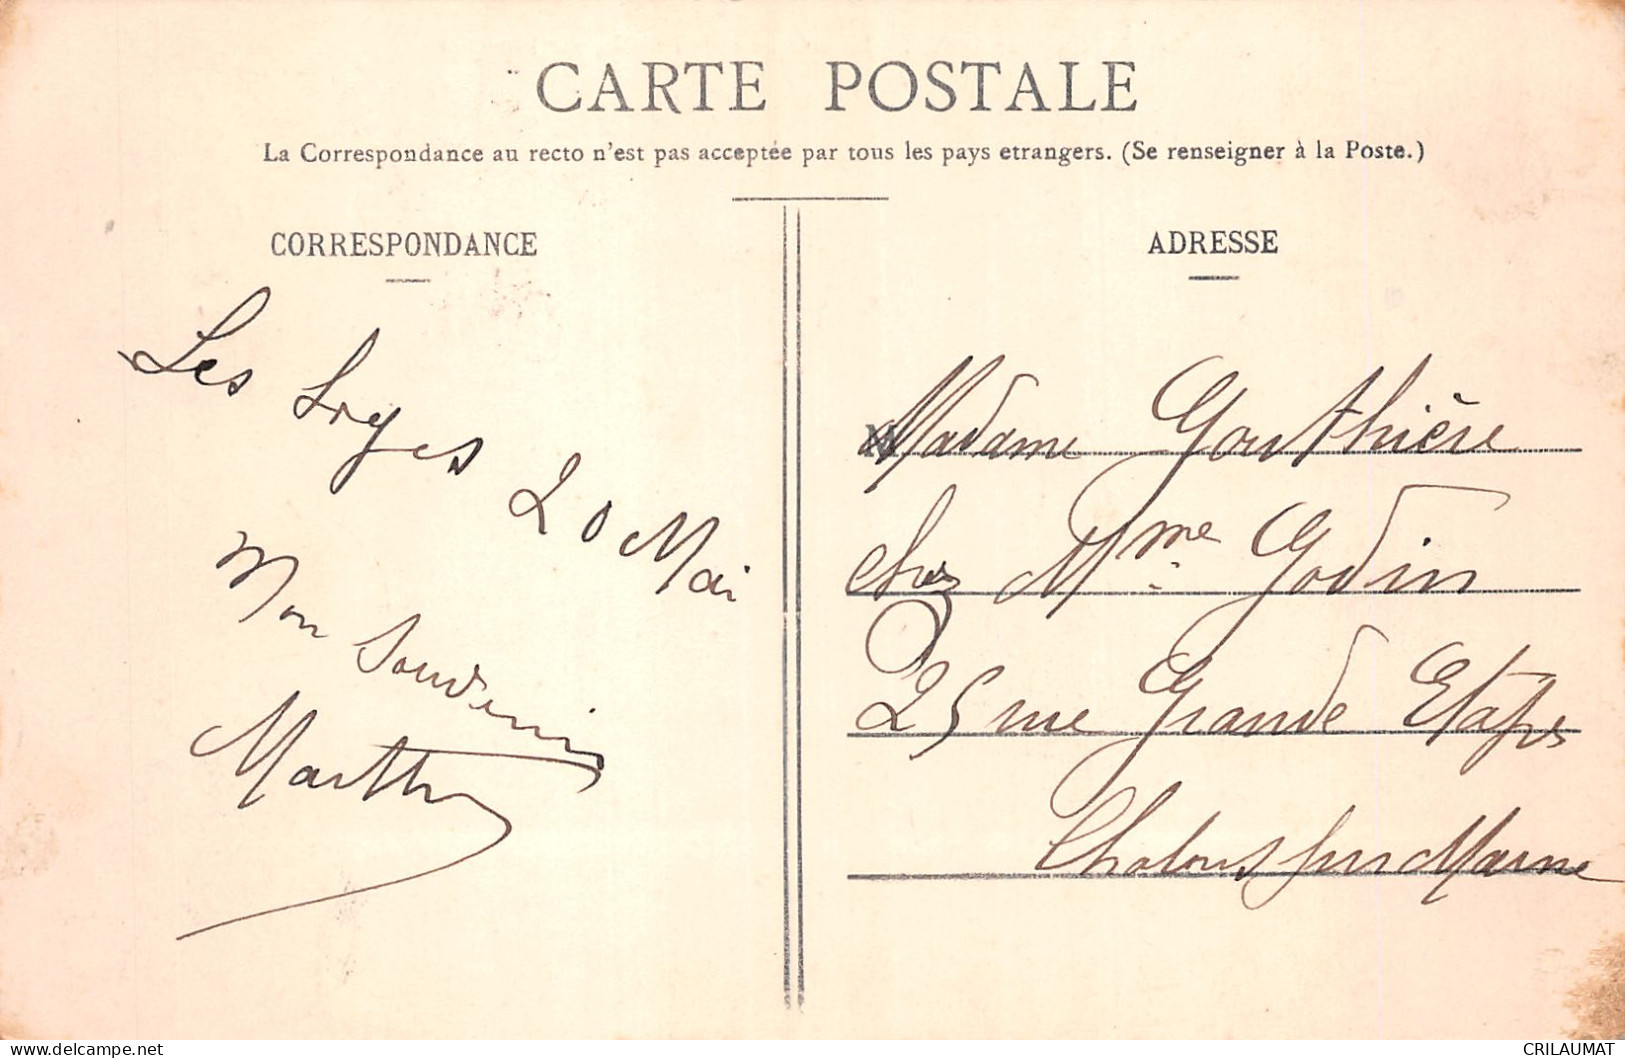 CARTE POSTALE
La Correspondance au recto n'est pas acceptée par tous les pays etrangers. (Se renseigner à la Poste.)
CORRESPONDANCE
Les
20 Mai
Mon Souvenir
Marthe
ADRESSE
Madame Gouthière
chez Mme Godin
25 rue Grande Etape
Chalons sur Marne
delcampe.net
CRILAUMAT